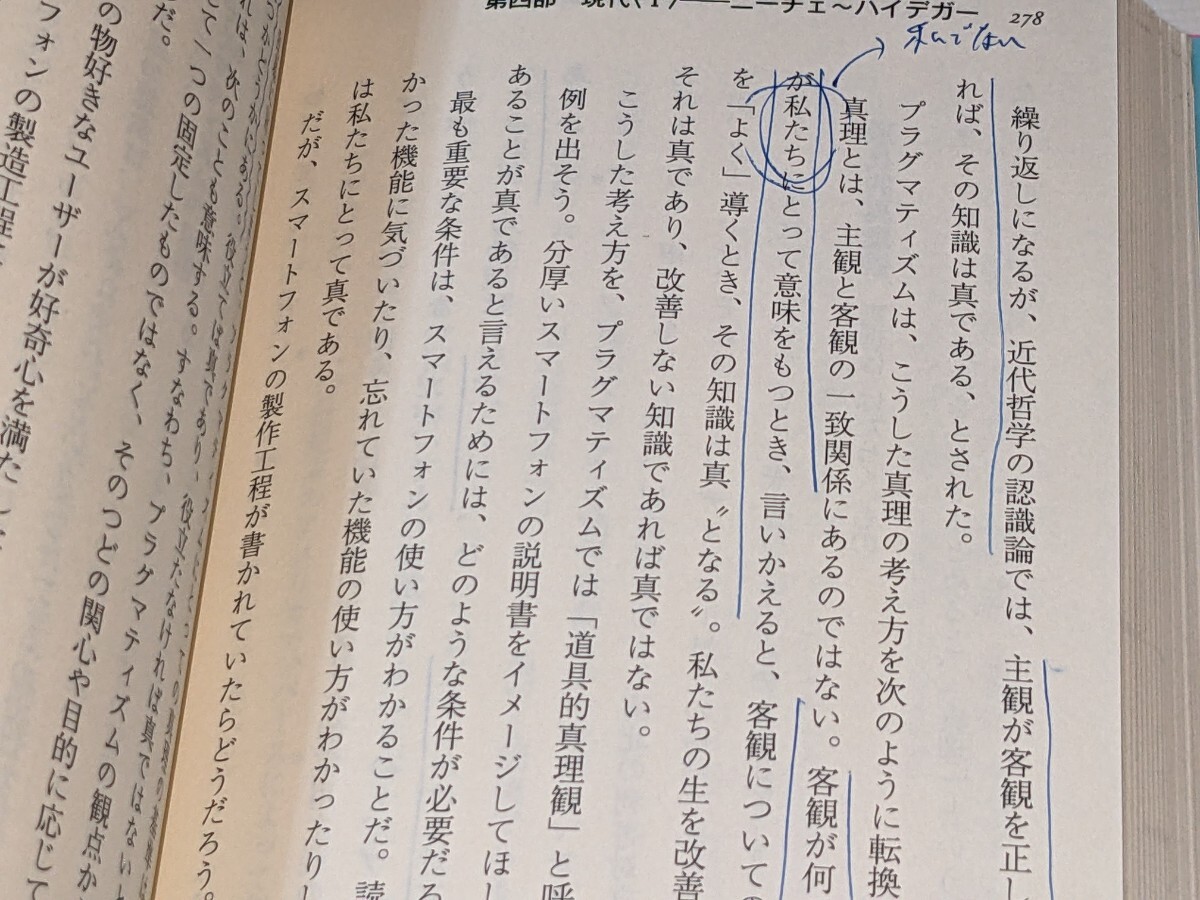 第四部 現代(I)――ニーチェ～ハイデガー
278
私でない
繰り返しになるが、近代哲学の認識論では、主観が客観を正し
れば、その知識は真である、とされた。
プラグマティズムは、こうした真理の考え方を次のように転換
真理とは、主観と客観の一致関係にあるのではない。客観が何
が私たちにとって意味をもつとき、言いかえると、客観についての
を「よく」導くとき、その知識は真〝となる〟。私たちの生を改善
それは真であり、改善しない知識であれば真ではない。
こうした考え方を、プラグマティズムでは「道具的真理観」と呼
例を出そう。分厚いスマートフォンの説明書をイメージしてほし
あることが真であると言えるためには、どのような条件が必要だろ
最も重要な条件は、スマートフォンの使い方がわかることだ。読
かった機能に気づいたり、忘れていた機能の使い方がわかったりし
は私たちにとって真である。
だが、スマートフォンの製作工程が書かれていたらどうだろう。
役立てば真であり、役立たなければ真ではないと
れは、次のことも意味する。すなわち、プラグマティズムの観点か
て一つの固定したものではなく、そのつどの関心や目的に応じて
だ。
の物好きなユーザーが好奇心を満た
フォンの製造工程